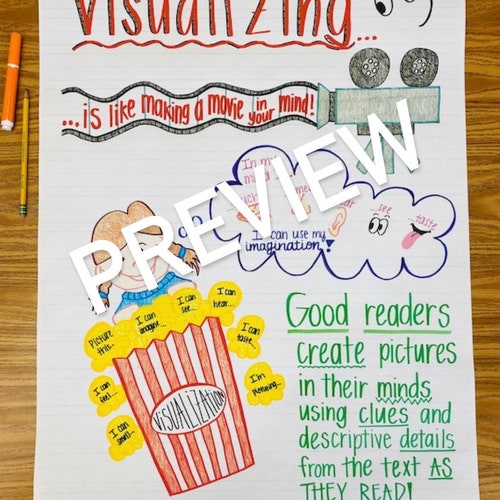 Visualizing...
...is like making a movie in your mind!
PREVIEW
In my
...see
...taste
I can use my
imagination!
I can
see...
I can
hear...
I can
imagine...
Picture
this...
I can
taste...
I can
feel...
I'm
picturing...
I can
smell...
VISUALIZATION
Good readers
create pictures
in their minds
using clues and
descriptive details
from the text AS
THEY READ!